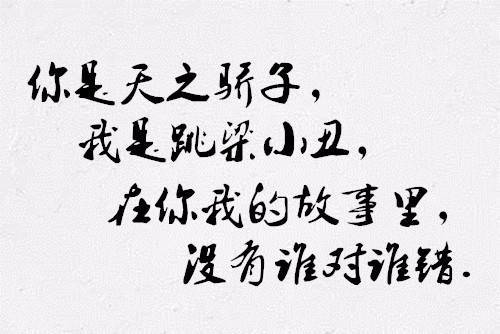 你是天之骄子，
我是跳梁小丑，
在你我的故事里，
没有谁对谁错.